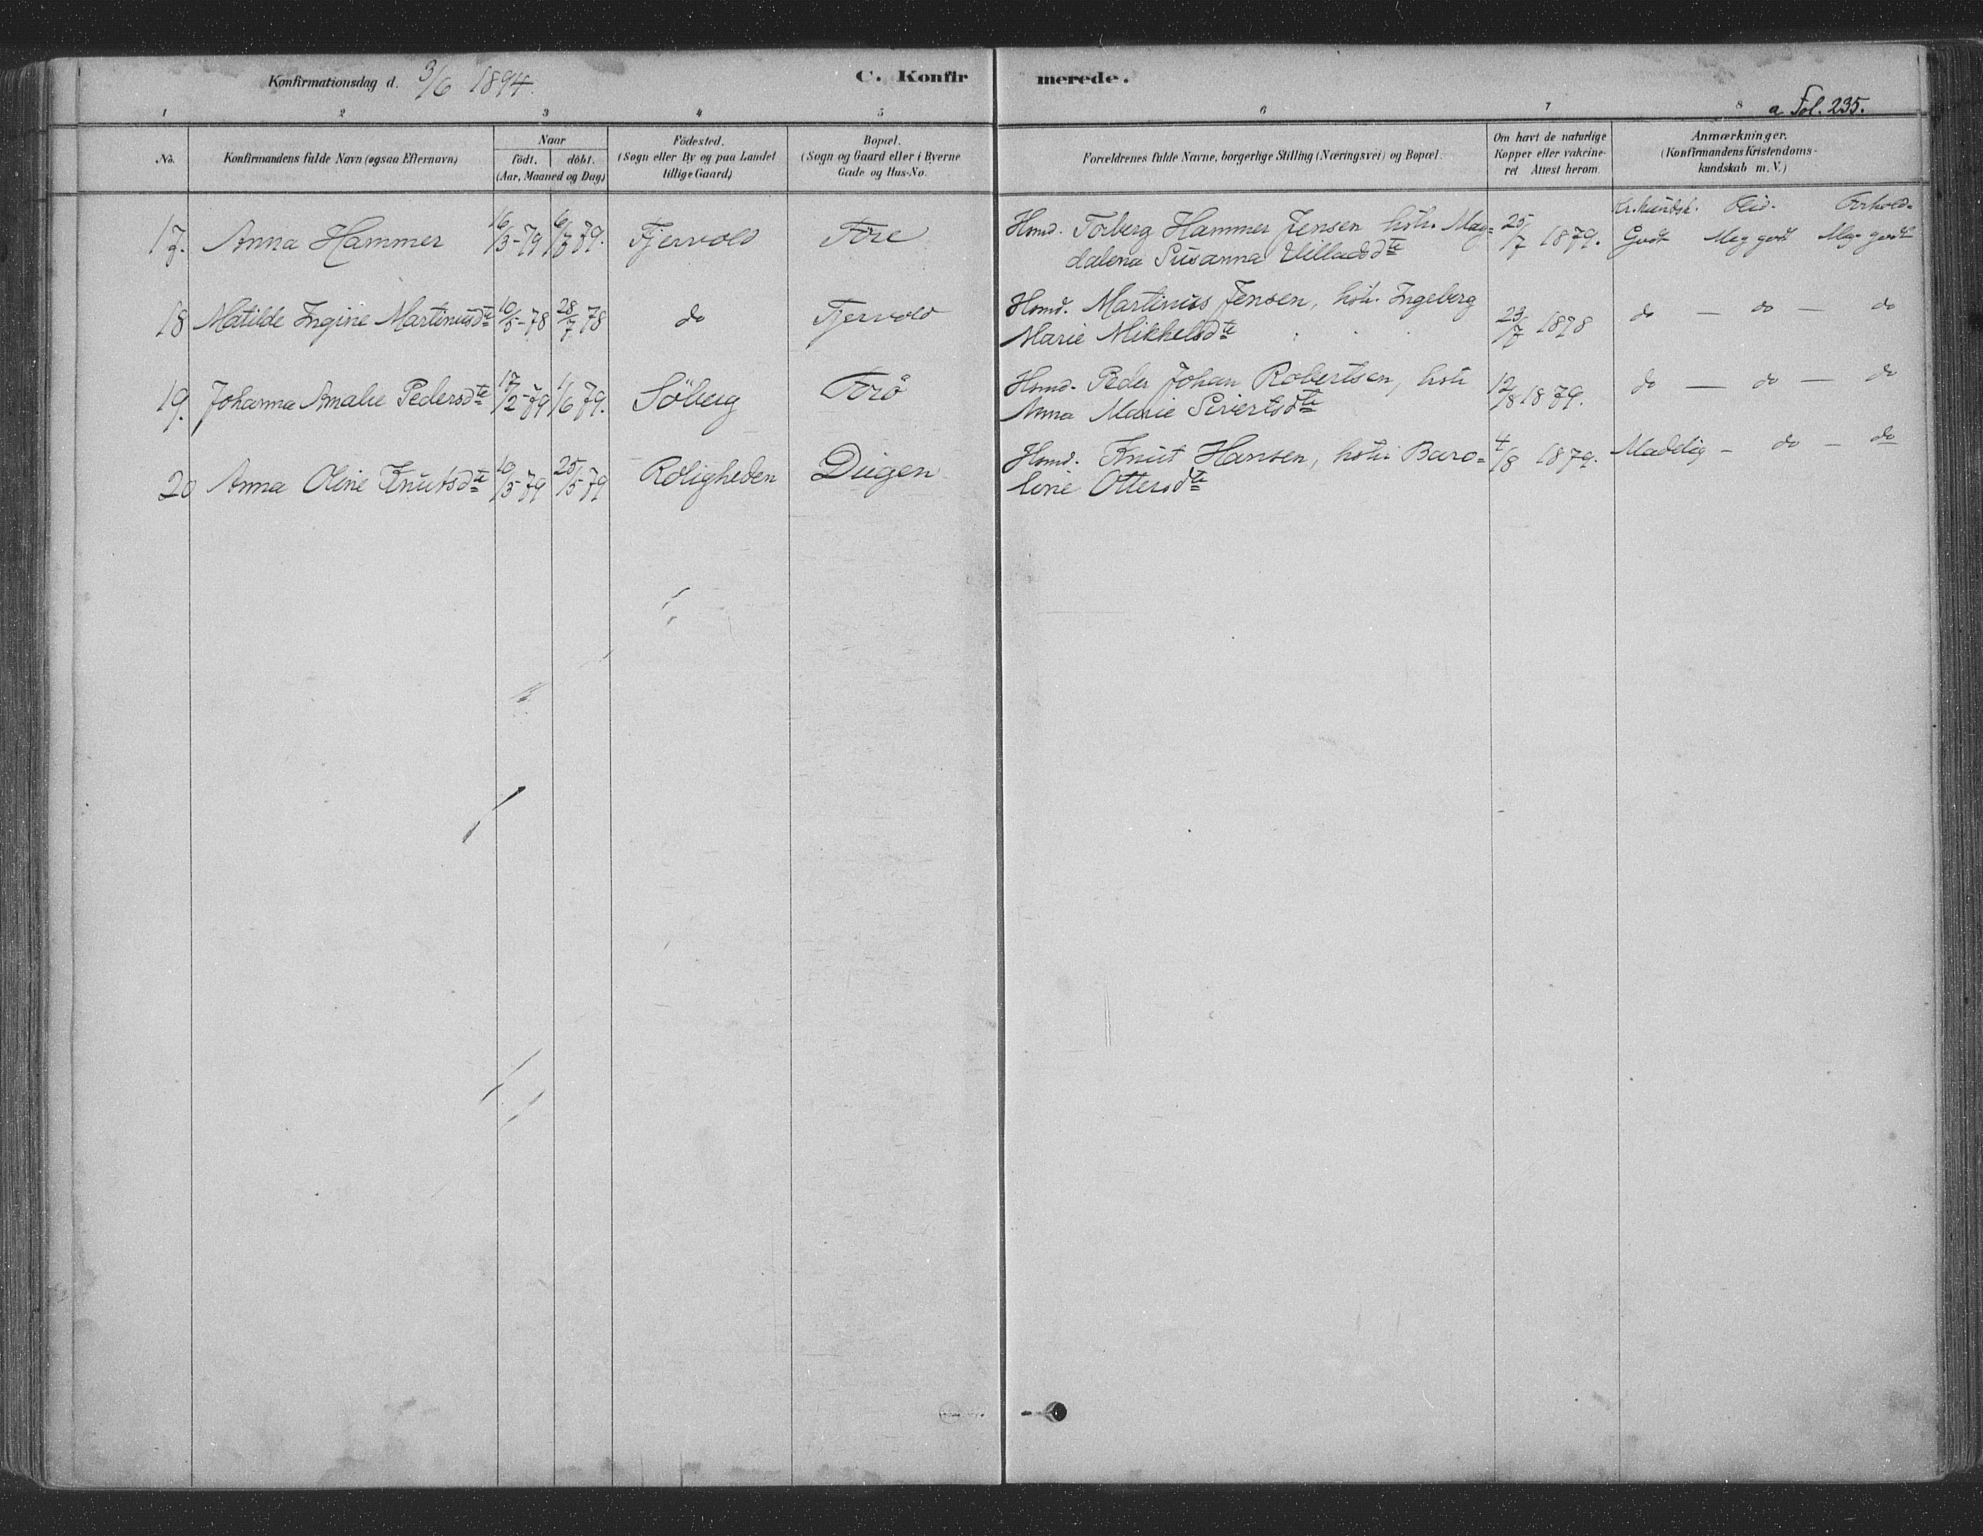 Konfirmationsdag d. 3/6 1894.
C. Konfirmerede.
a Fol. 235.
1 2 3 4 5 6 7 8
No.
Konfirmandens fulde Navn (ogsaa Efternavn)
Naar
födt. döbt.
(Aar, Maaned og Dag)
Födested.
(Sogn eller By og paa Landet
tillige Gaard)
Bopæl.
(Sogn og Gaard eller i Byerne
Gade og Hus-No.
Forældrenes fulde Navne, borgerlige Stilling (Næringsvei) og Bopæl.
Om havt de naturlige
Kopper eller vakcine-
ret Attest herom
Anmærkninger.
(Konfirmandens Kristendoms-
kundskab m. V.)
Kr. kundsk. Flid. Forhold.
17. Anna Hammer 16/3-79 79. Fjervold Tore Hsmd. Torberg Hammer Jensen hstr. Mag- 25/7 1879. Godt Meg godt Meg godt
dalena Susanna Villadsdtr
18 Matilde Ingine Martinusdtr 78 28/7 78 do Fjervold Hsmd. Martinus Jensen, hstr. Ingeberg 23/7 1898 do — do — do
Marie Mikkelsdtr
19. Johanna Amalie Pedersdtr 17/2-79 1/6 79. Söberg Torö Hsmd. Peder Johan Robertsen, hstr 12/8 1879. do — do — do
Anna Marie Sivertsdtr
20 Anna Oline Knutsdtr 79 25/5 79 Roligheden Digen Hsmd. Knut Hansen, hstr. Baro- 4/8 1879. Madelig — do — do
line Ottersdtr